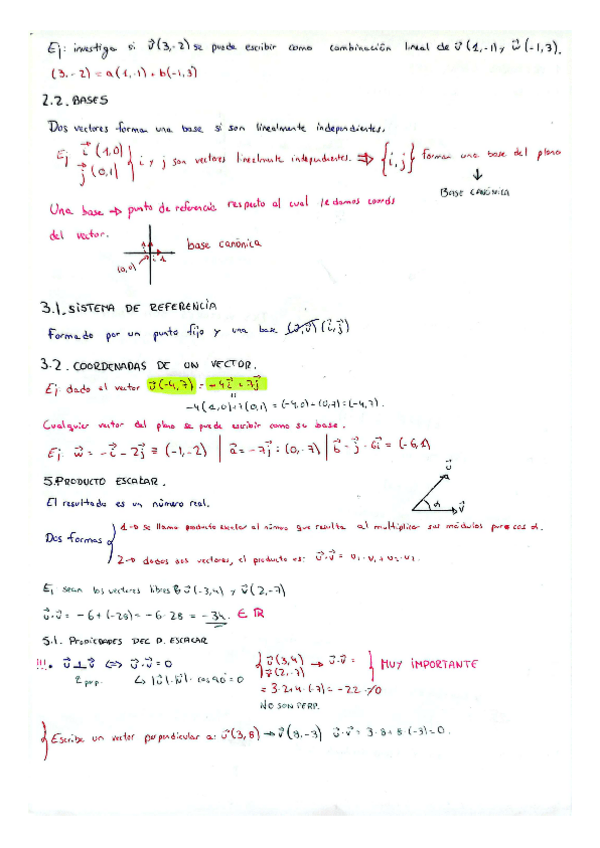 Ej: investiga si v⃗(3,-2) se puede escribir como combinación lineal de v⃗(1,-1) y w⃗(-1,3).
(3,-2) = a(1,-1) + b(-1,3)
2.2. BASES
Dos vectores forman una base si son linealmente independientes.
Ej i⃗(1,0) j⃗(0,1) } i y j son vectores linealmente independientes. ⇒ {i⃗, j⃗} forman una base del plano
↓
BASE CANÓNICA
Una base → punto de referencia respecto al cual le damos coords
del vector.
base canónica
(0,0) i 1
3.1. SISTEMA DE REFERENCIA
Formado por un punto fijo y una base (i⃗,j⃗)
3.2. COORDENADAS DE UN VECTOR.
Ej dado el vector v⃗(-4,7) = -4i⃗+7j⃗
=
-4(1,0)+7(0,1) = (-4,0)+(0,7) = (-4,7).
Cualquier vector del plano se puede escribir como su base.
Ej: w⃗ = -i⃗ - 2j⃗ = (-1,-2) | a⃗ = -7j⃗ = (0,-7) | b⃗ = j⃗ - 6i⃗ = (-6,1)
5. PRODUCTO ESCALAR.
u⃗
α
v⃗
El resultado es un número real.
Dos formas
1→ se llama producto escalar al número que resulta al multiplicar sus módulos por cos α.
2→ dados dos vectores, el producto es: u⃗·v⃗ = u₁·v₁+u₂·v₂.
Ej sean los vectores libres u⃗(-3,4) y v⃗(2,-7)
u⃗·v⃗ = -6+(-28) = -6-28 = -34. ∈ ℝ
5.1. PROPIEDADES DEL P. ESCALAR
!!!. u⃗⊥v⃗ ⇔ u⃗·v⃗=0
2 perp. ↳ |u⃗|·|v⃗|·cos 90°=0
{ u⃗(3,4) v⃗(2,-7) → u⃗·v⃗ = } MUY IMPORTANTE
= 3·2+4·(-7) = -22 ≠0
NO SON PERP.
Escribe un vector perpendicular a: u⃗(3,8) → v⃗(8,-3) u⃗·v⃗ = 3·8+8·(-3)=0.